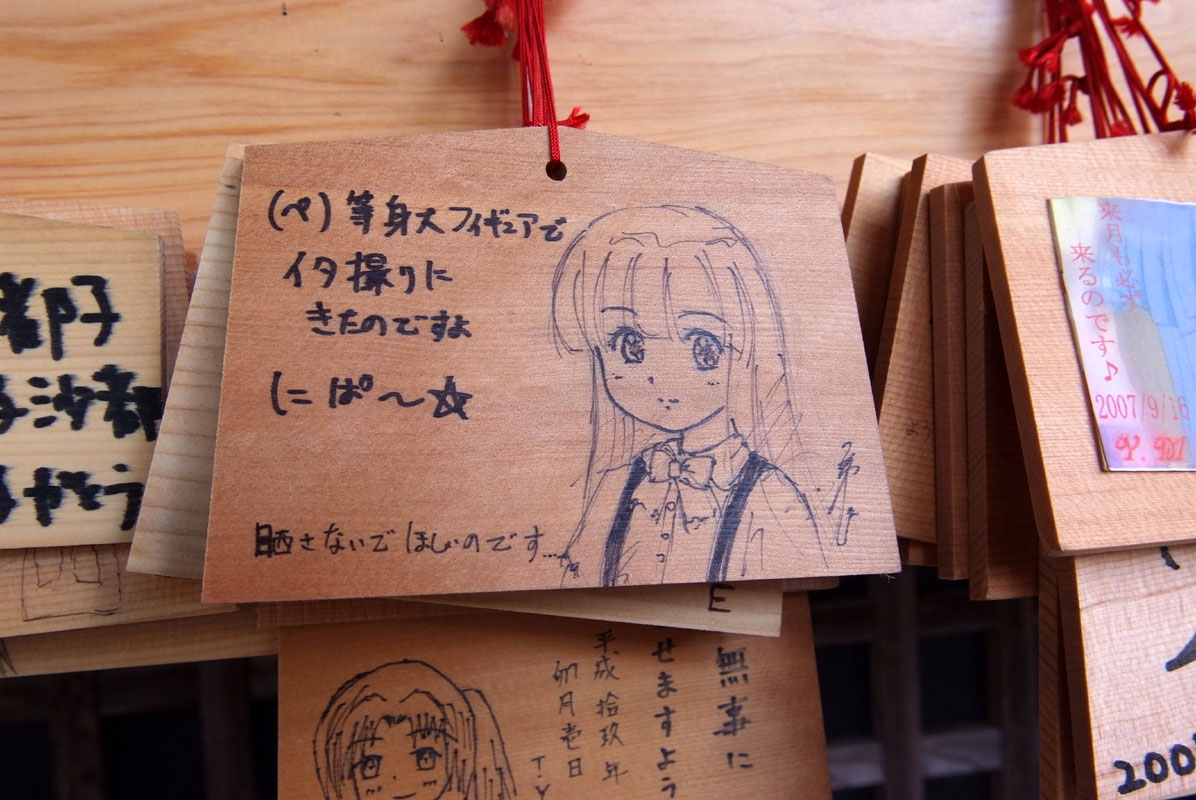 (ぺ)等身大フィギュアで
イタ撮りに
きたのですよ
にぱ～☆
晒さないでほしいのです…
都子
沙都
がとう
E
無事に
せますよう
平成拾玖年
卯月壱日
T.Y
来月も必ず
来るのです♪
2007/9/16
よう
200